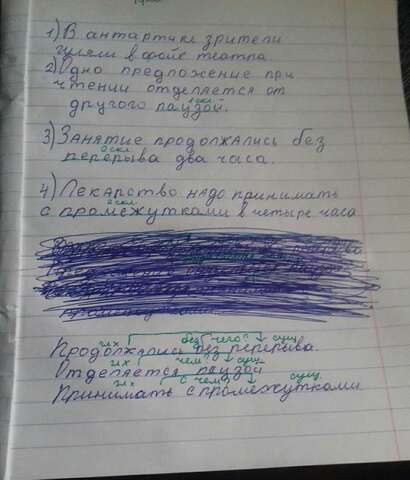 1) В антартике зрители
гуляли в фойе театра.
2) Одно предложение при
чтении отделяется от
1 скл.
другого паузой.
3) Занятие продолжались без
2 скл.
перерыва два часа.
4) Лекарство надо принимать
2 скл.
с промежутками в четыре часа
гл х без чего? сущ
Продолжались без перерыва.
гл х чем? сущ
Отделяется паузой
гл х с чем? сущ
Принимать с промежутками